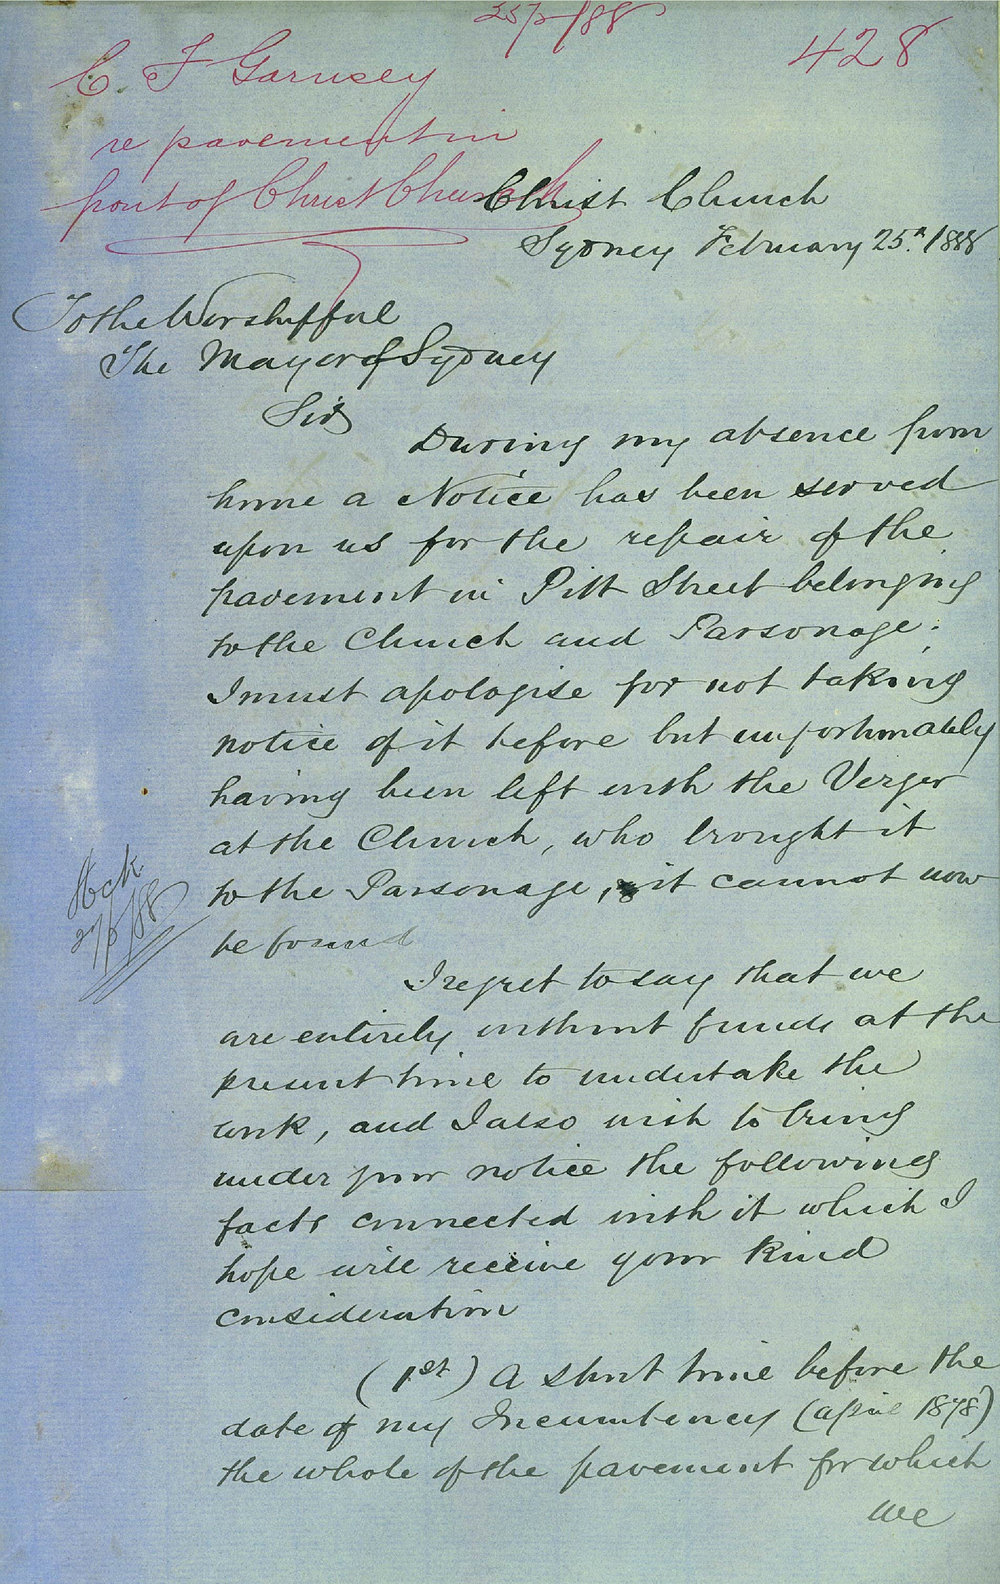 25/2/88
428
C. F Garnsey
re pavement in
front of Christ Church
Christ Church
Sydney February 25th. 1888
To the Worshipful
The Mayor of Sydney
Sir
During my absence from
home a Notice has been served
upon us for the repair of the
pavement in Pitt Street belonging
to the Church and Parsonage;
I must apologise for not taking
notice of it before but unfortunately
having been left with the Verger
at the Church, who brought it
to the Parsonage, it cannot now
be found
Ack
27/2/88
I regret to say that we
are entirely without funds at the
present time to undertake the
work, and I also wish to bring
under your notice the following
facts connected with it which I
hope will receive your kind
consideration
(1st) A short time before the
date of my Incumbency (april 1878)
the whole of the pavement for which
we